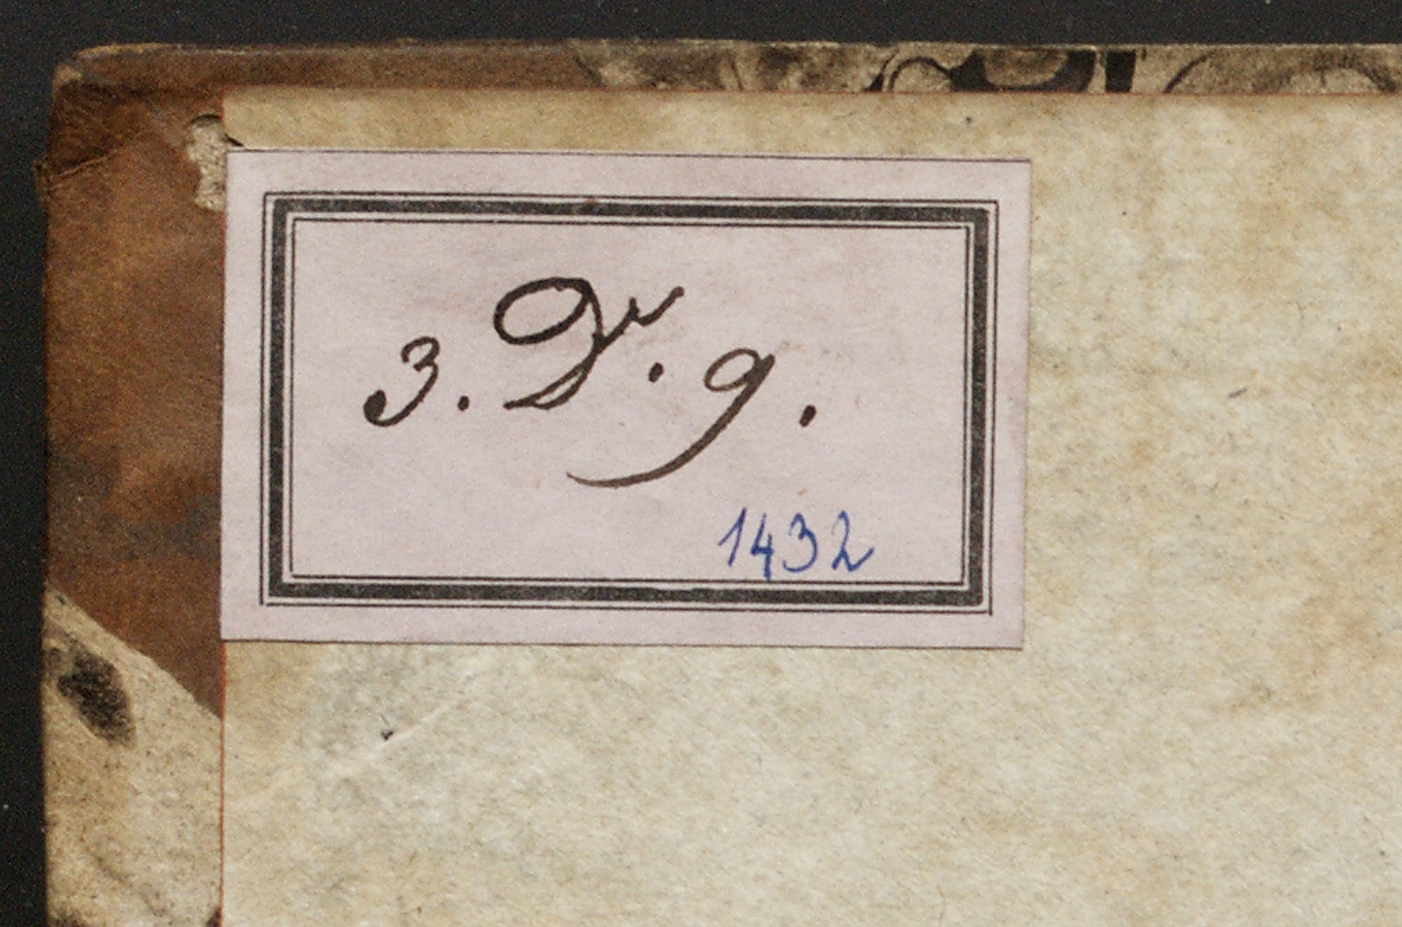 3. V. 9.
1432